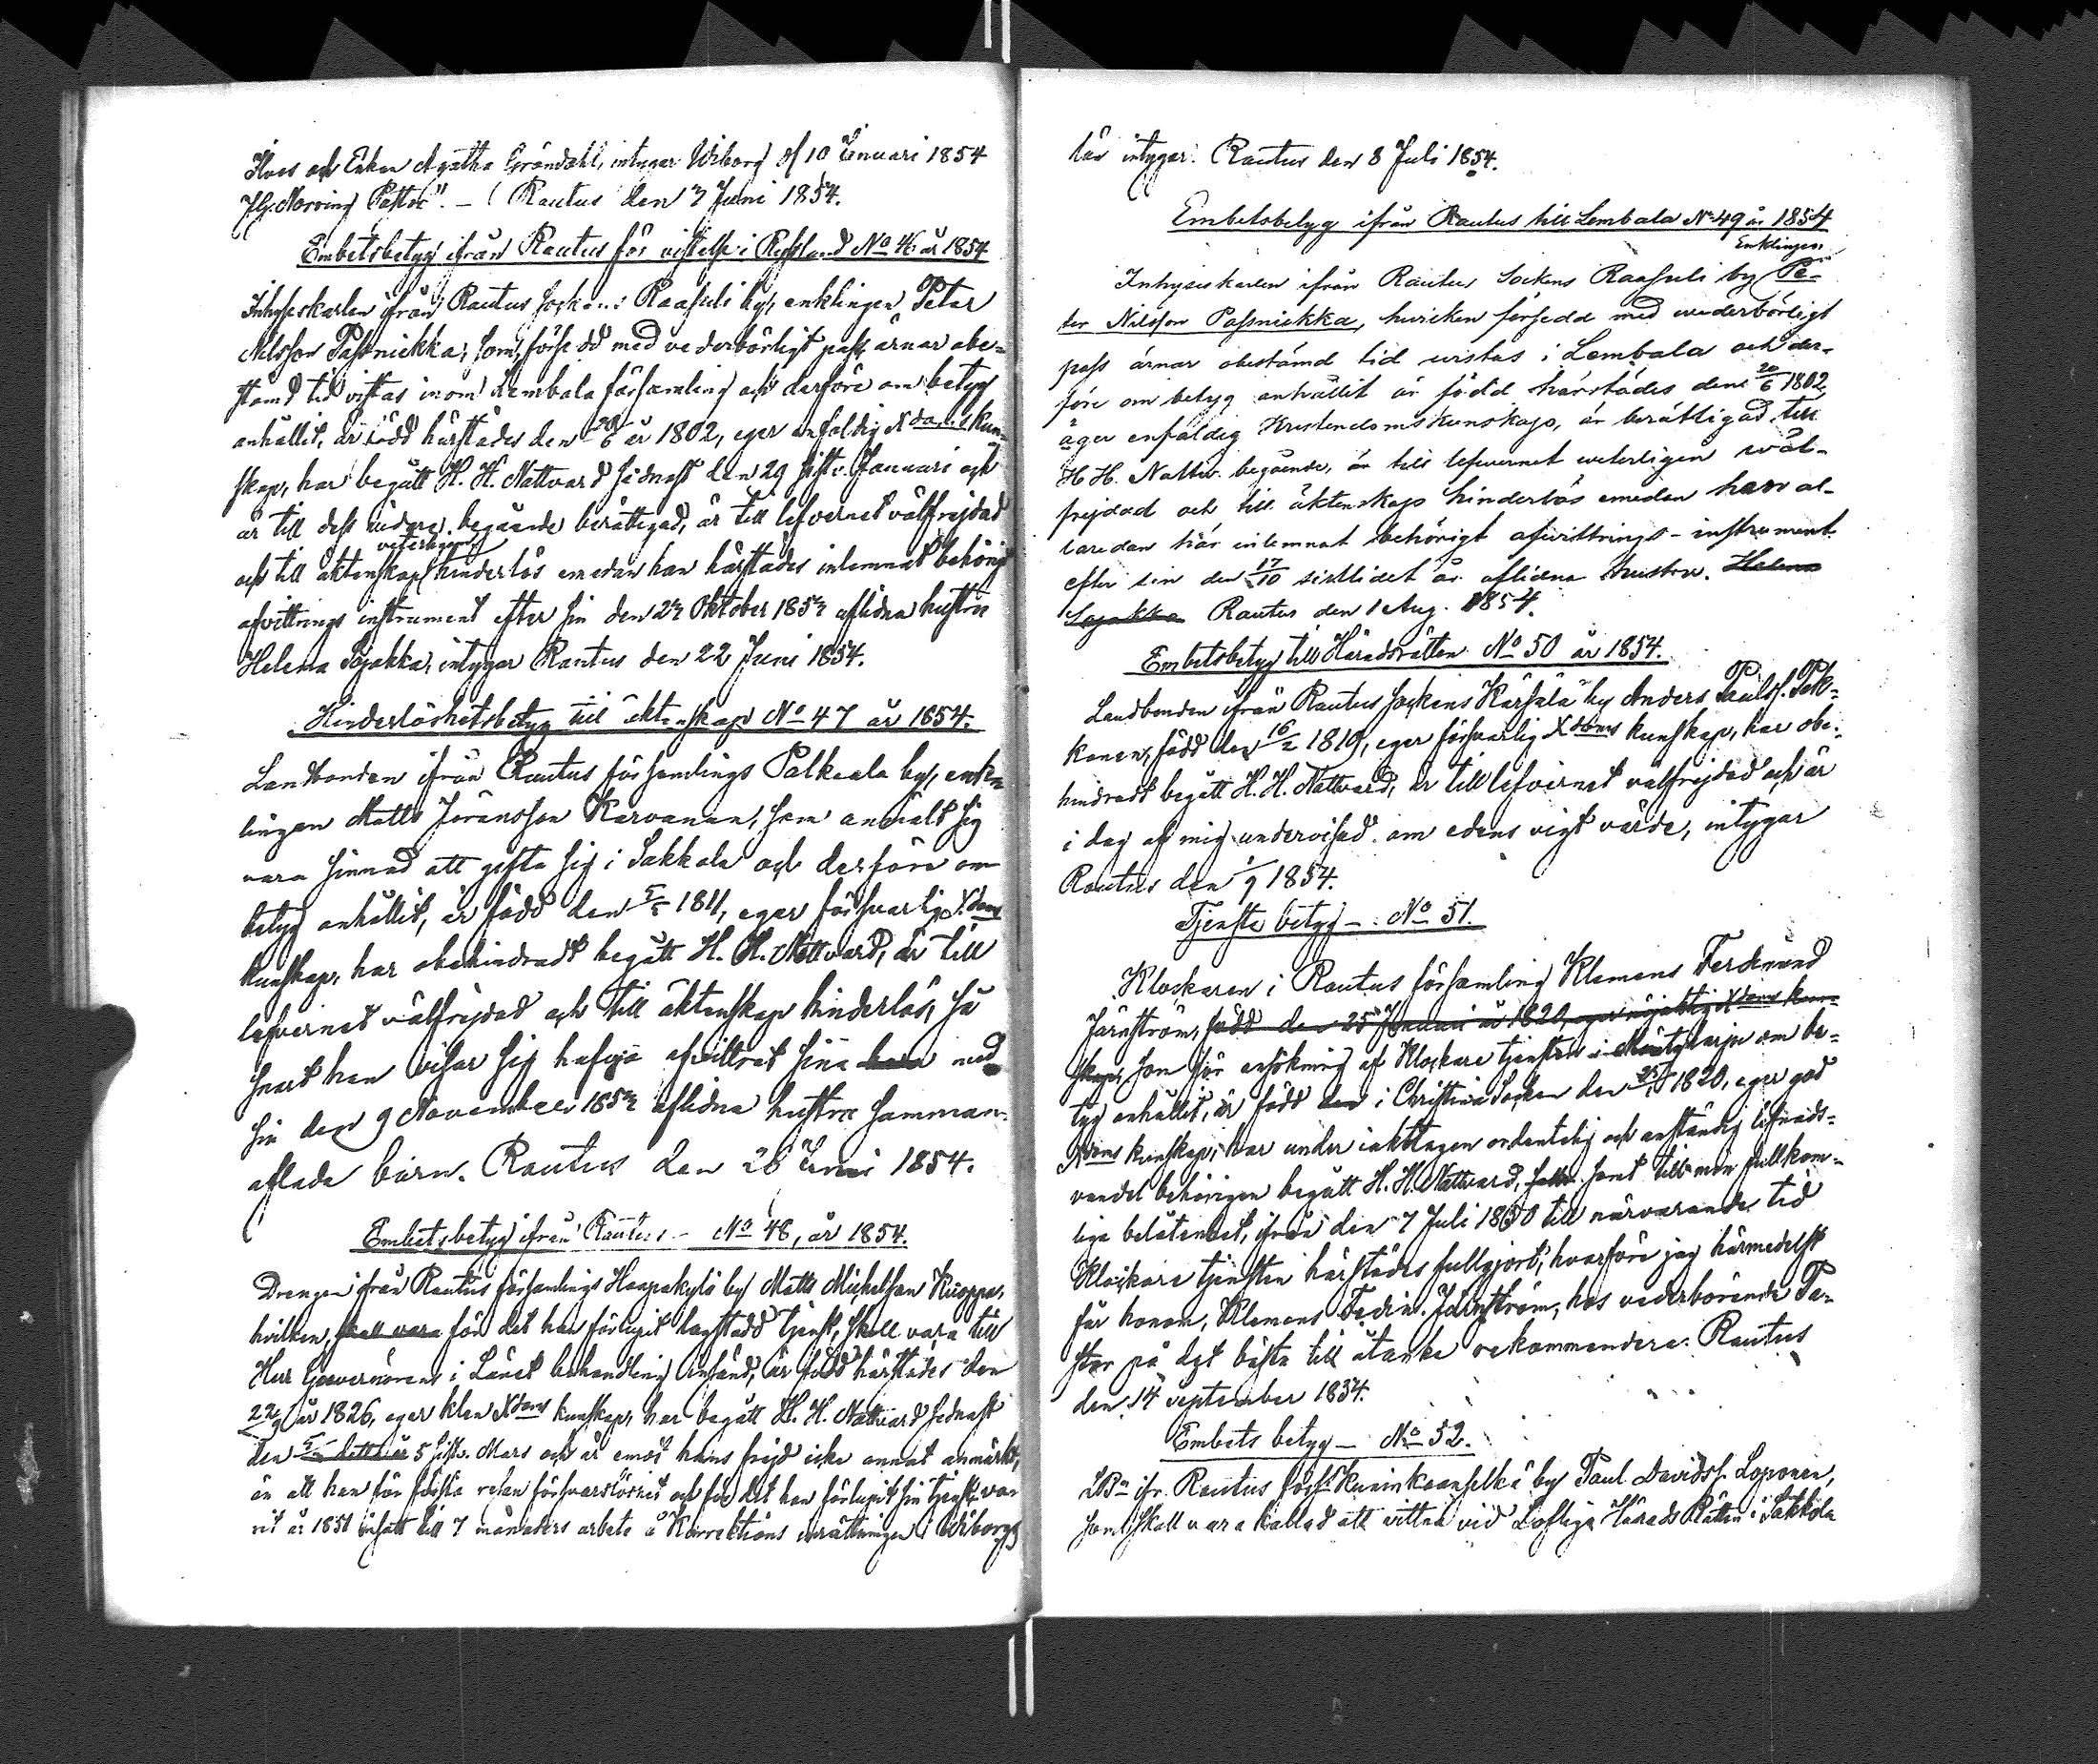 och Enkan Agatha Gröndahl, intygar Wiborg d 10 Januari 1854
Pastor". — Rautus den 7 Juni 1854.
Embetsbetyg ifrån Rautus för vistelse i Ryssland No 46 år 1854
Inhyseskarlen ifrån Rautus sockens Raasuli by, enklingen Petar
Nilsson Passnickka, som, försedd med vederbörligt pass, ärnar obe=
stämd tid vistas inom Lembala församling och derföre om betyg
anhållit, är född härstädes den 20/6 år 1802, eger enfaldig Xdoms kun=
skap, har begått H. H. Nattvard sednast den 29 sistl. Januari och
är till dess vidare begående berättigad, är till lefvernet välfrejdad
veterligen
och till äktenskap hinderlös emedan han härstädes inlemnat behörigt
afvittrings instrument efter sin den 27 Oktober 1852 aflidna hustru
Helena Sojakka, intygar Rautus den 22 Juni 1854.
Hinderlöshetsbetyg till äktenskap No 47 år 1854.
Landbonden ifrån Rautus församlings Palkeala by, enk=
lingen Matts Jöransson Karvanen, som anmält sig
vara sinnad att gifta sig i Sakkola och derföre om
betyg anhållit, är född den 1811, eger försvarlig Xdoms
kunskap, har obehindradt begått H. H. Nattvard, är till
lefvernet välfrejdad och till äktenskap hinderlös, så
snart han visar sig hafva afvittrat sina med
sin den 9 November 1852 aflidna hustru samman=
aflade barn. Rautus den 28 Juni 1854.
Embetsbetyg ifrån Rautus — No 48, år 1854.
Drengen ifrån Rautus församlings Haapakylä by Matts Michelsson Kuoppa,
hvilken, skall vara för det han förlupit lagstadd tjenst, skall vara till
Herr Guvernörens i Länet behandling insänd, är född härstädes den
22/9 år 1826, eger klen Xdoms kunskap, har begått H. H. Nattvard sednast
den 5 sistl. Mars och är emot hans frejd icke annat anmärkt,
än att han för första resan försvarslöshet och för det han förlupit sin tjenst, va=
rit år 1851 insatt till 7 månaders arbete å Korrektions inrättningen i Wiborg,
här intygar: Rautus den 8 Juli 1854.
Embetsbetyg ifrån Rautus till Lembala No 49 år 1854
Enklingen
Inhyseskarlen ifrån Rautus Sockens Raasuli by Pe-
ter Nilsson Passnickka, hvilken försedd med vederbörligt
pass ärnar obestämd tid vistas i Lembala och der-
före om betyg anhållit är född härstädes den 20/6 1802,
äger enfaldig Kristendomskunskap, är berättigad till
H H. Nattv. begående, är till lefvernet veterligen väl-
frejdad och till äktenskap hinderlös emedan han al-
laredan här inlemnat behörigt afvittrings-instrument
efter sin den 27/10 sistlidet år aflidna hustru. Helena
Sojakka Rautus den 1 Aug. 1854.
Embetsbetyg till Häradsrätten No 50 år 1854.
Landbonden ifrån Rautus sockens Kärsälä by Anders Paulss. Pek=
konen, född den 16/2 1819, eger försvarlig Xdoms kunskap, har obe=
hindradt begått H. H. Nattvard, är till lefvernet välfrejdad och är
i dag af mig undervisad om edens vigt värde, intygar
Rautus den 1/9 1854.
Tjenste betyg — No 51.
Klockaren i Rautus församling Klemens Ferdinand
Järnström, född den 25 Januari år 1820, eger nöjaktig Xdoms kun=
skap, som för ansökning af Klockare tjensten i Mäntyharju om be=
tyg anhållit, är född den i Christina Socken den 1820, eger god
Xdoms kunskap, har under iakttagen ordentelig och anständig lefnads=
vandel behörigen begått H. H. Nattvard, samt till min fullkom=
liga belåtenhet, ifrån den 7 Juli 1850 till närvarande tid
Klockare tjensten härstädes fullgjort, hvarföre jag härmedelst
får honom, Klemens Ferdin. Järnström, hos vederbörande Pa=
stor på det bästa till åtanke rekommendera. Rautus
den 14 september 1854.
Embets betyg — No 52.
LBn ifr. Rautus förs. Kuninkaanselkä by Paul Davidss. Loponen,
som skall vara kallad att vittna vid Loflige Härads Rätten i Sakkola